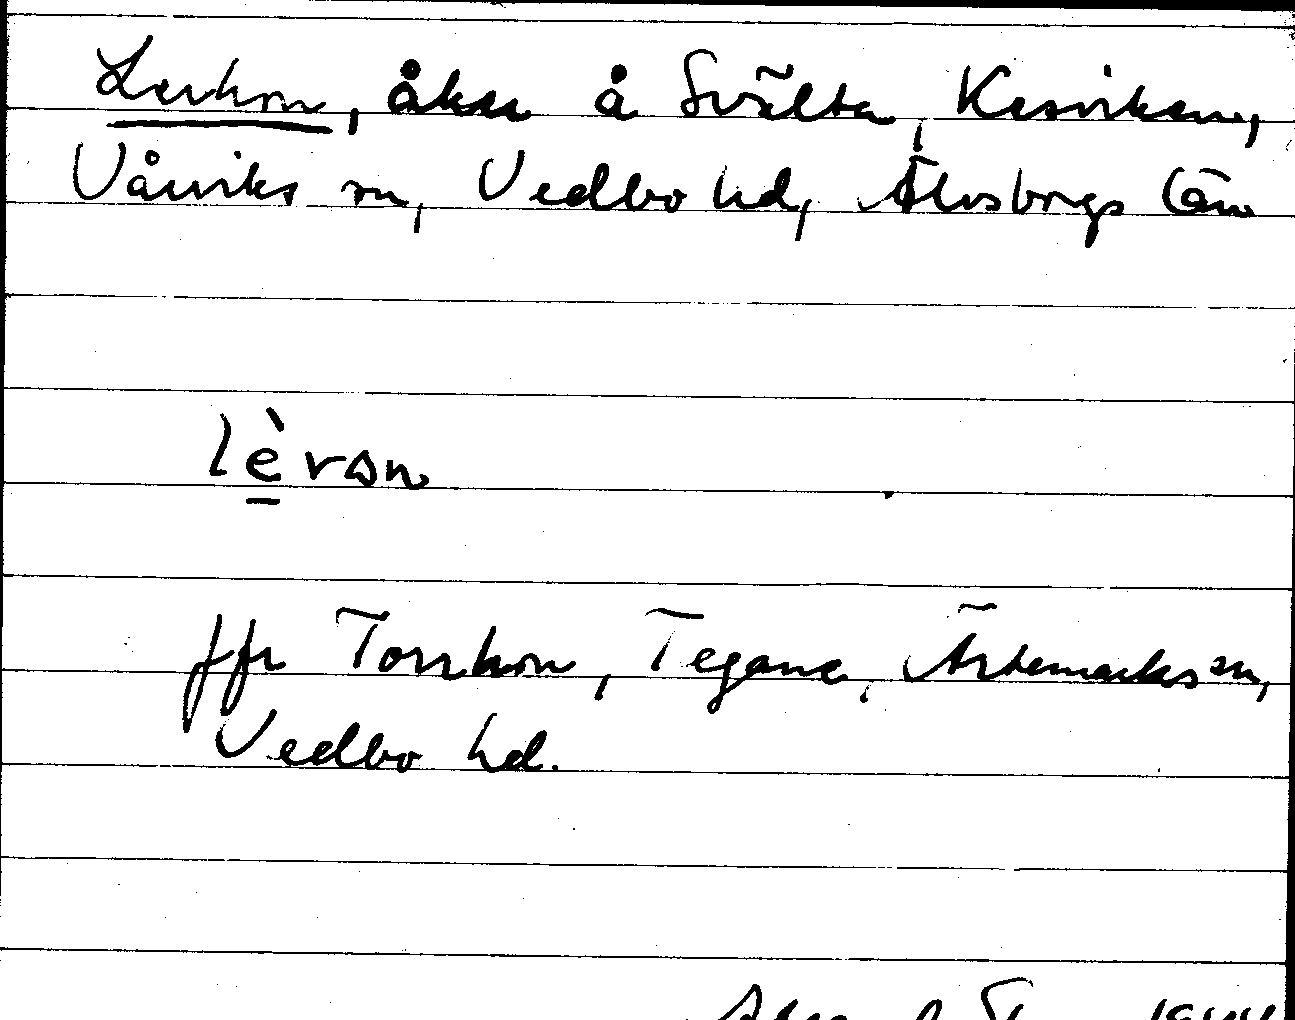 Lerkon, åker å Svälta, Kesviken,
Vårviks sn, Vedbo hd, Älvsborgs län
lèrən
jfr Torrkon, Tegane, Ärtemarks sn,
Vedbo hd.